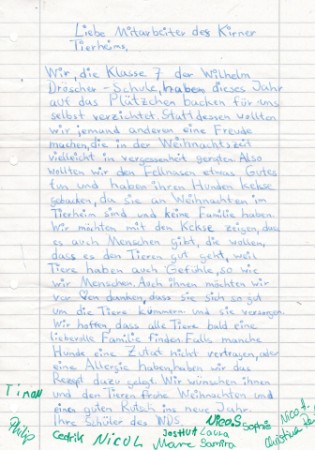 Liebe Mitarbeiter des Kirner
Tierheims,
Wir, die Klasse 7 der Wilhelm
Dröscher-Schule, haben dieses Jahr
auf das Plützchen backen für uns
selbst verzichtet. Statt dessen wollten
wir jemand anderen eine Freude
machen, die in der Weihnachtszeit
vielleicht in vergessenheit geraten. Also
wollten wir den Fellnasen etwas Gutes
tun und haben ihren Hunden kekse
gebacken, da sie an Weihnachten im
Tierheim sind und keine Familie haben.
Wir möchten mit den Kekse zeigen, dass
es auch Menschen gibt, die wollen,
dass es den Tieren gut geht, weil
Tiere haben auch Gefühle, so wie
wir Menschen. Auch ihnen möchten wir
danken, dass sie sich so gut
um die Tiere kümmern und sie versorgen.
Wir hoffen, dass alle Tiere bald eine
liebevolle Familie finden. Falls manche
Hunde eine Zutat nicht vertragen, oder
eine Allergie haben, haben wir das
Rezept dazu gelegt. Wir wünschen ihnen
und den Tieren frohe Weihnachten und
einen guten Rutsch ins neue Jahr.
Ihre Schüler des WDS
Philip Cedrik NICOL Joshua Marc Samira
Nico S Sophie Nico